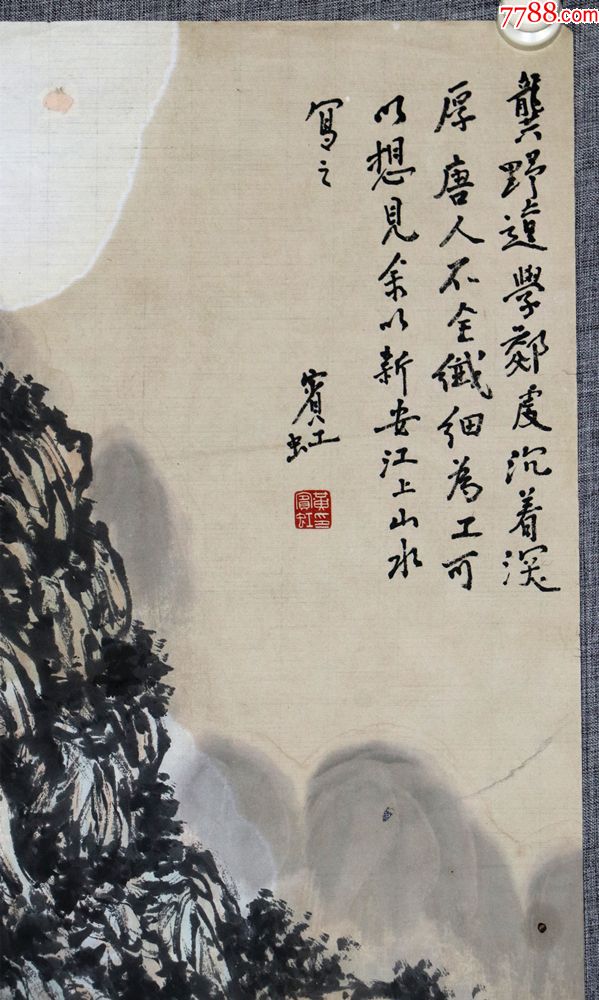 7788.com
龔野遺學郯虔沉着深
厚唐人不全纖细為工可
以想見余以新安江上山水
寫之
賓虹
黃賓虹印